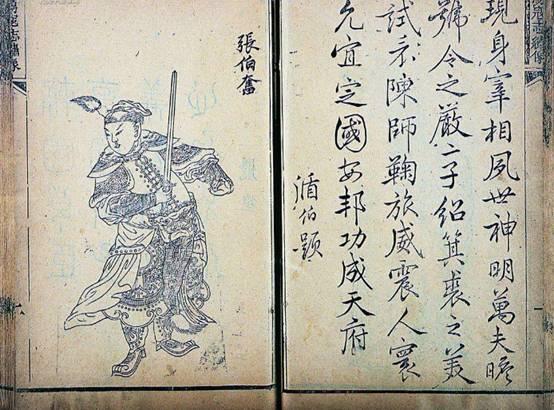 現身宰相夙世神明萬夫瞻
號令之嚴二子紹箕裘之美
試看陳師鞠旅威震人寰
允宜定國安邦功成天府
伯題
張伯奮